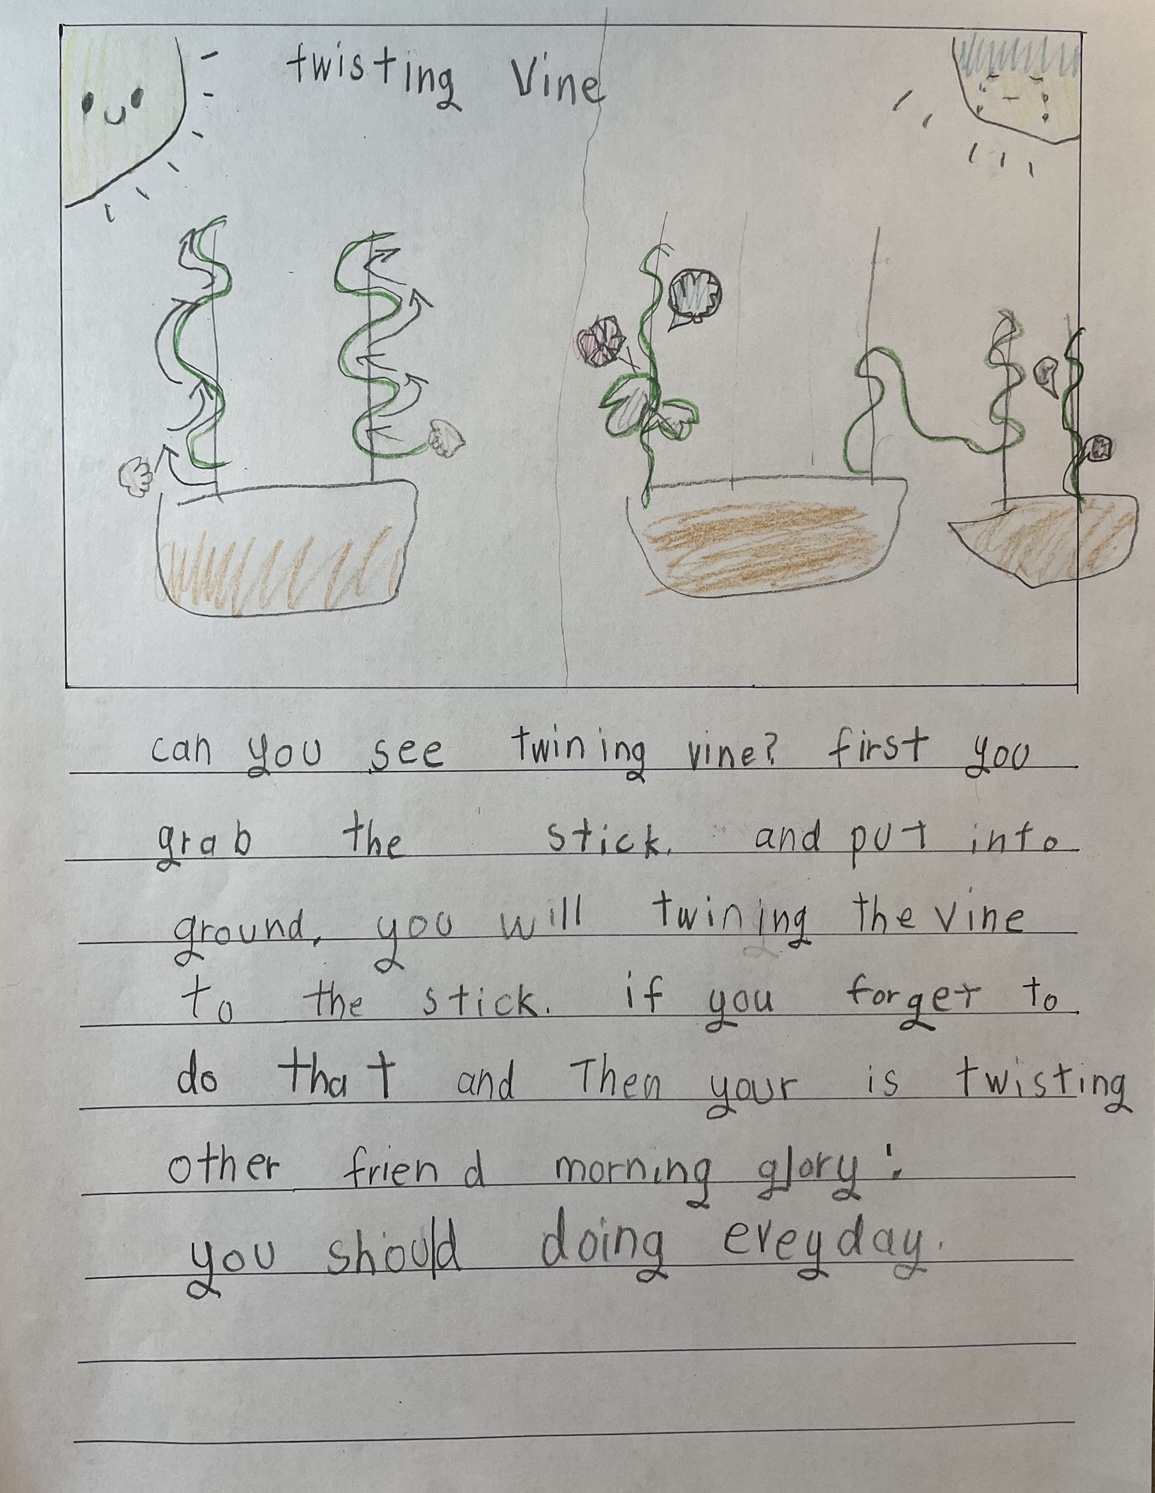 twisting Vine
can you see twining vine? first you
grab the stick. and put into
ground, you will twining the vine
to the stick. if you forget to
do that and Then your is twisting
other friend morning glory!
you should doing eveyday.